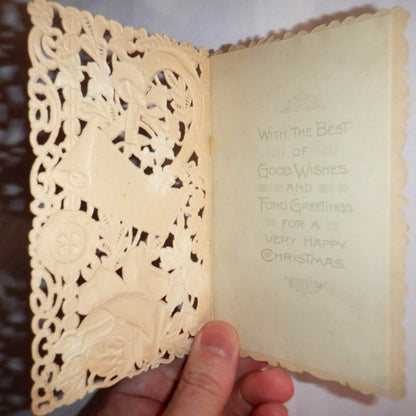 With the Best
of
Good Wishes
and
Fond Greetings
for a
Very Happy
Christmas.